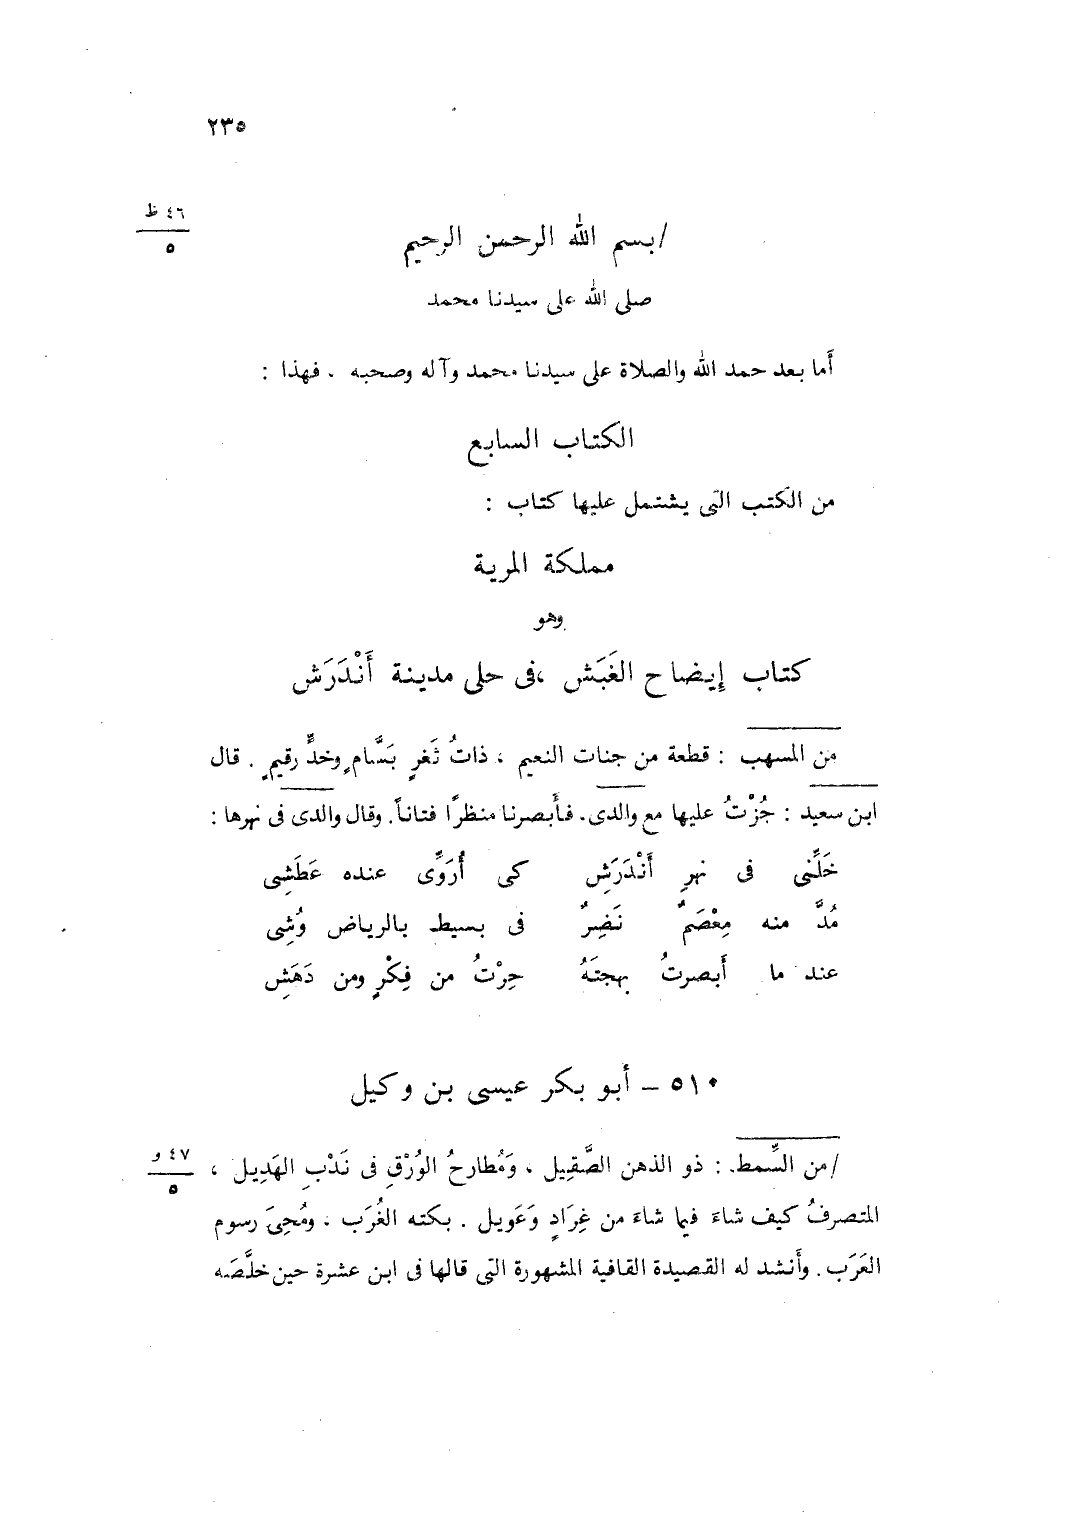 ٢٣٥
٤٦ ظ
٥
/ بسم الله الرحمن الرحيم
صلى الله على سيدنا محمد
أما بعد حمد الله والصلاة على سيدنا محمد وآله وصحبه . فهذا :
الكتاب السابع
من الكتب التى يشتمل عليها كتاب :
مملكة المرية
وهو
كتاب إيضاح الغَبَش ، فى حلى مدينة أَنْدَرَش
من المسهب : قطعة من جنات النعيم ، ذاتُ ثَغرٍ بَسَّامٍ وخدٍّ رقيمٍ . قال
ابن سعيد : جُزْتُ عليها مع والدى . فأَبصرنا منظرًا فتاناً . وقال والدى فى نهرها :
خَلِّنى فى نهرِ أَنْدَرَشِ كى أُرَوِّى عنده عَطَشِى
مُدَّ منه مِعْصَمٌ نَضِرٌ فى بسيط بالرياض وُشِى
عند ما أَبصرتُ بهجتَهُ حِرْتُ من فِكْرٍ ومن دَهَشِ
٥١٠ – أبو بكر عيسى بن وكيل
٤٧ و
٥
/ من السِّمط : ذو الذهن الصَّقِيل ، وَمُطارحُ الوُرْقِ فى نَدْبِ الهَدِيل ،
المتصرفُ كيف شاءَ فيما شاءَ من غِرَادٍ وَعَويل . بكته الغُرَب ، ومُحِىَ رسوم
العَرَب . وأَنشد له القصيدة القافية المشهورة التى قالها فى ابن عشرة حين خلَّصَه